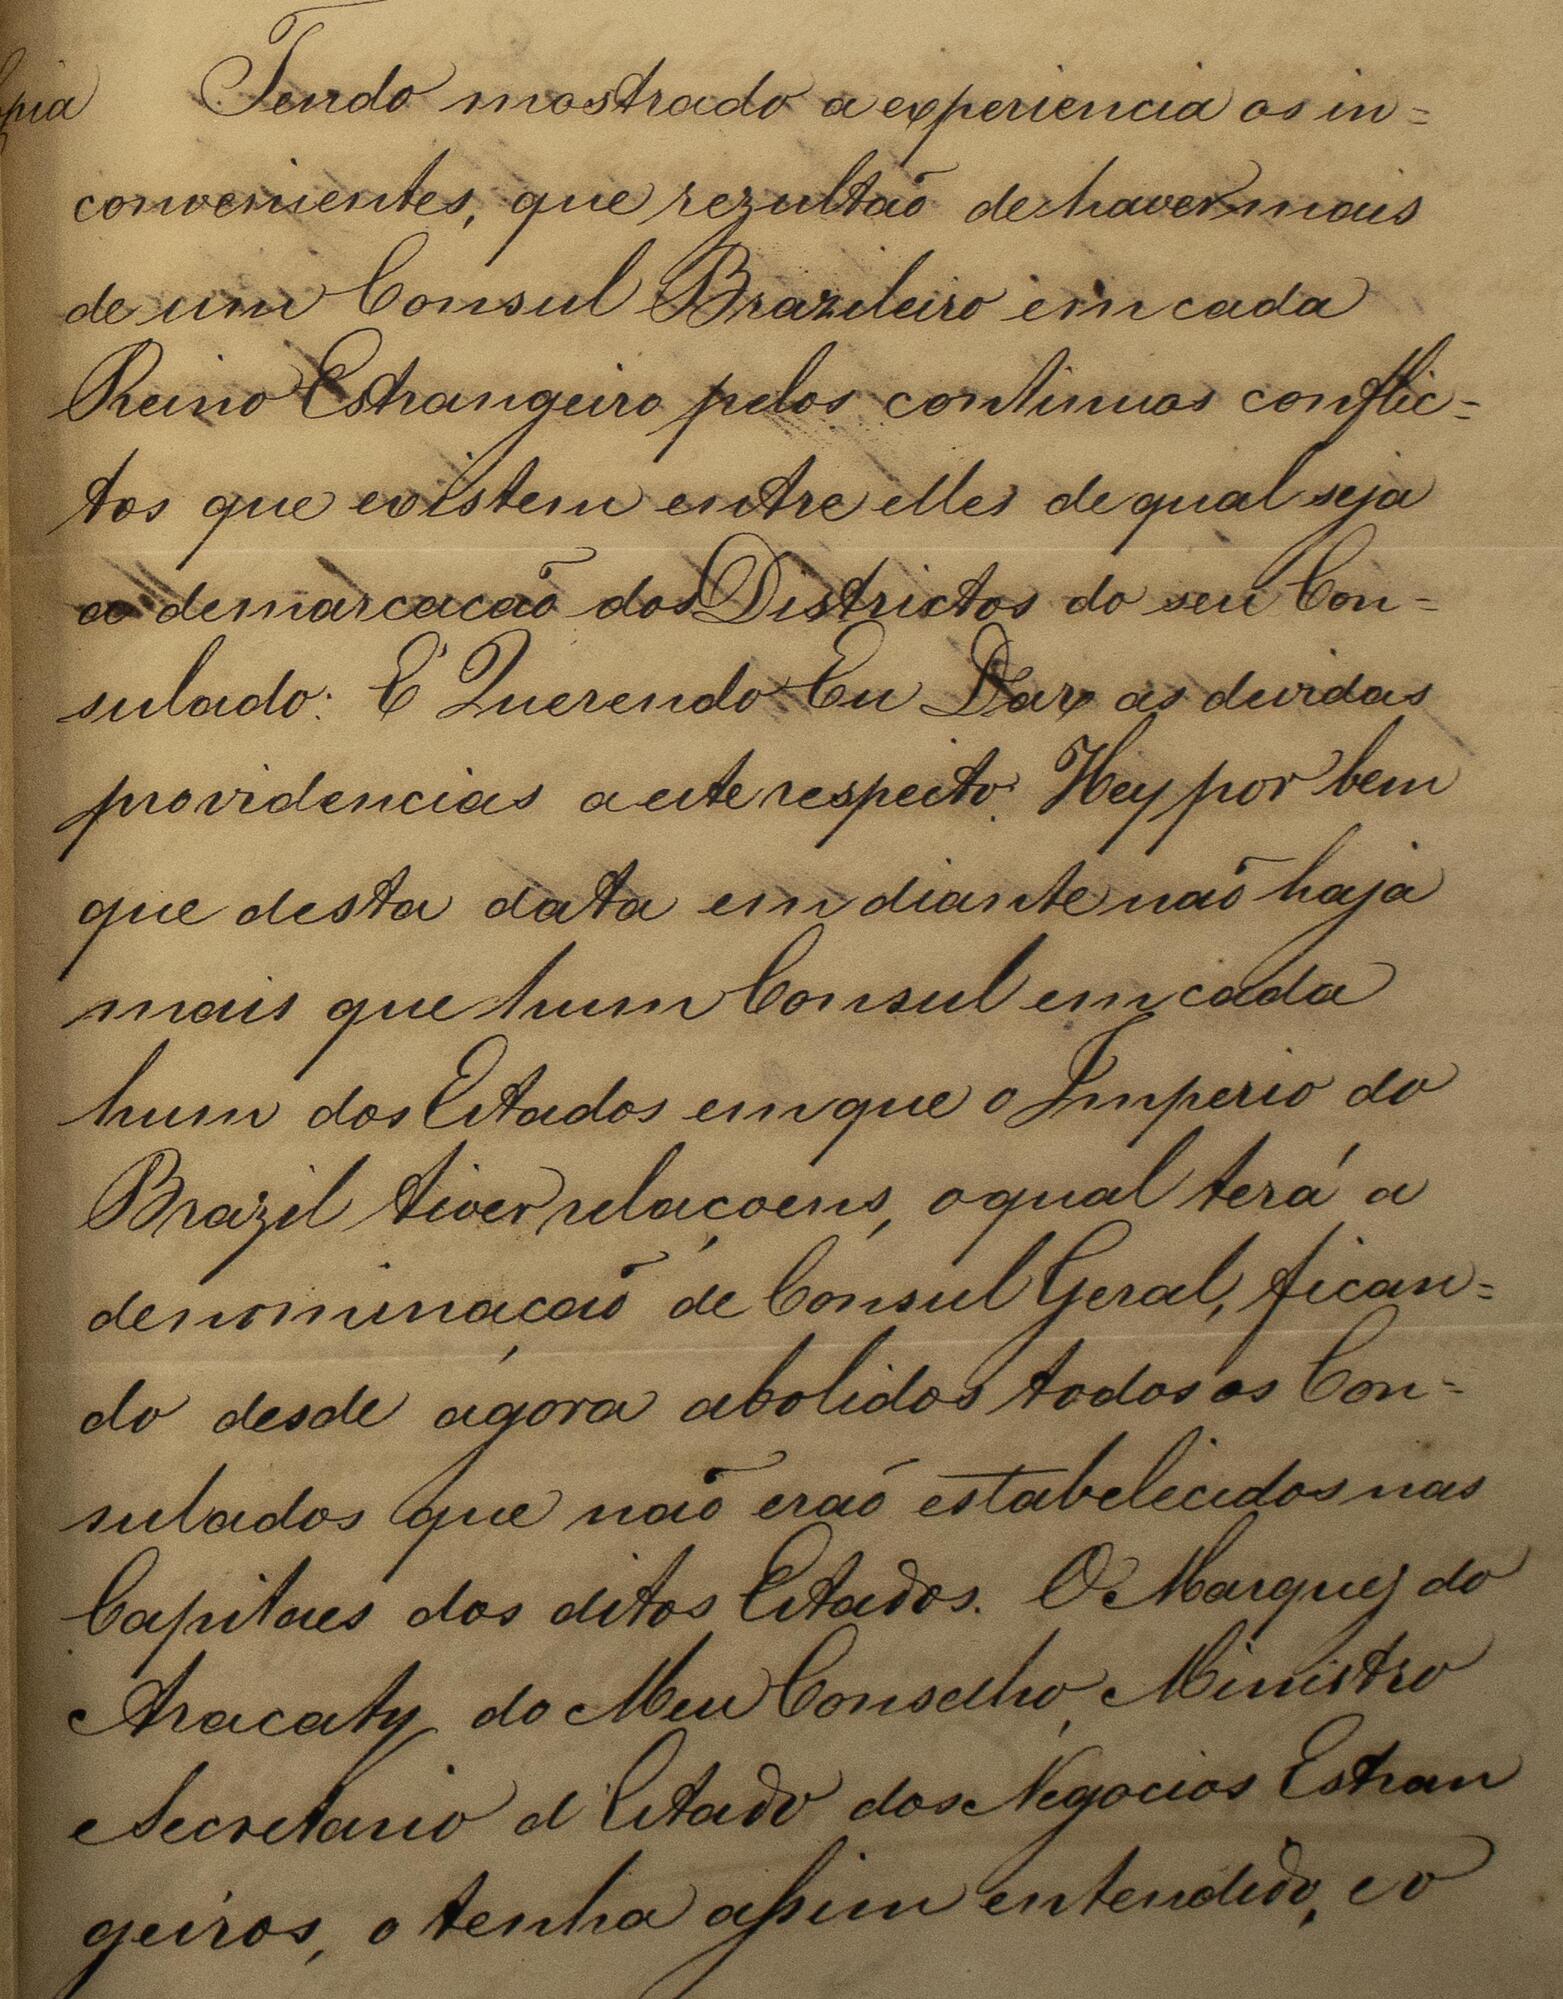 pia
Tendo mostrado a experiencia os in=
convenientes, que rezultaõ de haver mais
de um Consul Brazileiro em cada
Reino Estrangeiro pelos continuos conflic=
tos que existem entre elles de qual seja
a demarcacaõ dos Districtos do seu Con=
sulado: E Querendo Eu Dar as devidas
providencias a este respeito: Hey por bem
que desta data em diante naõ haja
mais que hum Consul em cada
hum dos Estados em que o Imperio do
Brazil tiver relaçoens, o qual terá a
denominaçaõ de Consul Geral, fican=
do desde agora abolidos todos os Con=
sulados que naõ eraõ estabelecidos nas
Capitaes dos ditos Estados. O Marquez do
Aracaty do Meu Conselho, Ministro
e Secretario d'Estado dos Negocios Estran
geiros, o tenha assim entendido, e o